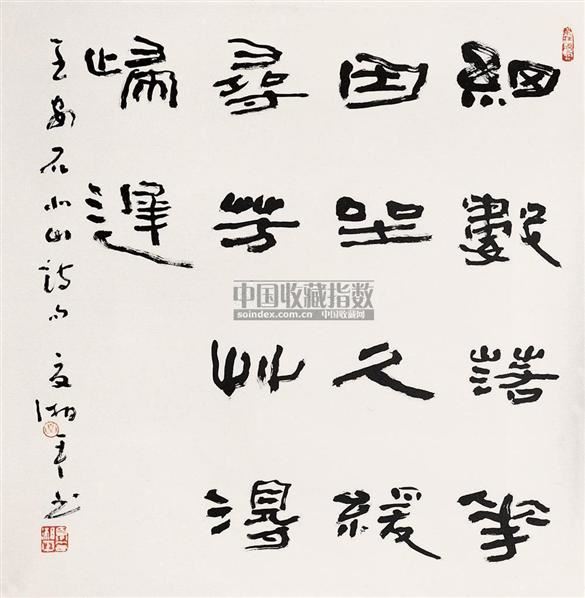 細數落花
因坐久緩
尋芳草得
歸遲
王安石北山詩句 夏湘平书
中国收藏指数
soindex.com.cn 中国收藏网